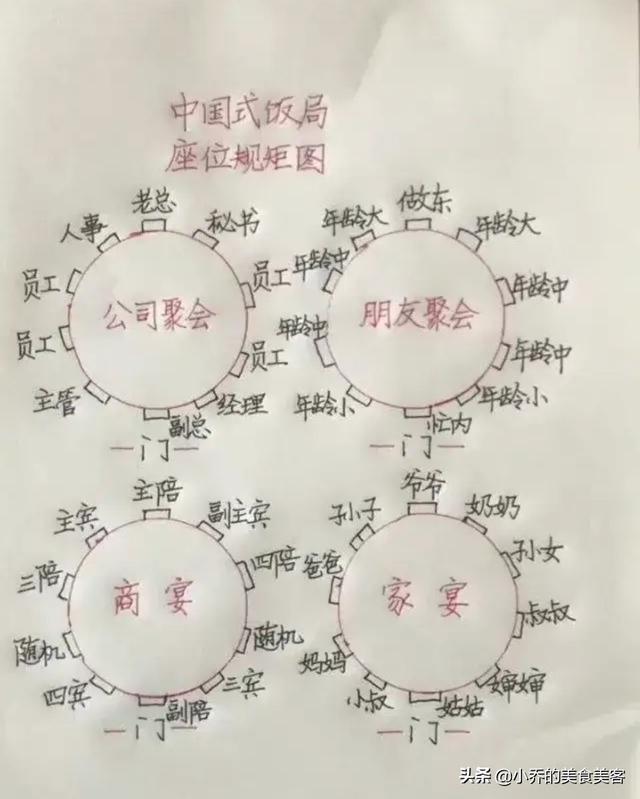 中国式饭局
座位规矩图
老总
人事
秘书
员工
员工
员工
员工
主管
经理
副总
公司聚会
门
做东
年龄大
年龄大
年龄中
年龄中
年龄中
年龄中
年龄小
年龄小
忙内
朋友聚会
门
主陪
主宾
副主宾
三陪
四陪
随机
随机
四宾
三宾
副陪
商宴
门
爷爷
孙子
奶奶
爸爸
孙女
妈妈
叔叔
小叔
婶婶
姑姑
家宴
门
头条 @小乔的美食美客